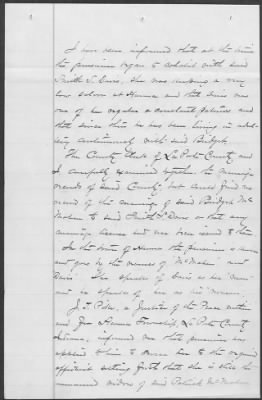 I have been informed that at the time
the pensioner began to cohabit with said
Smith T. Davis, she was keeping a very
low saloon at Hanna, and that Davis was
one of her regular & constant patrons and
that since then he has been living in adul-
tery continuously with said Bridget.
The County Clerk of La Porte County, and
I carefully examined together the marriage
records of said County, but could find no
record of the marriage of said Bridget Mc
Mahon to said Smith T. Davis or that any
marriage license had ever been issued to them.
In the town of Hanna the pensioner is known
and goes by the names of "McMahon" and
Davis. She speaks of Davis as her "man"
and he speaks of her as his "woman."
J. T. a Justice of the Peace within
and for Hanna Township, La Porte County
Indiana, informed me that pensioner has
applied to him to swear her to the required
affidavit setting forth that she is still the
unmarried widow of said Patrick McMahon